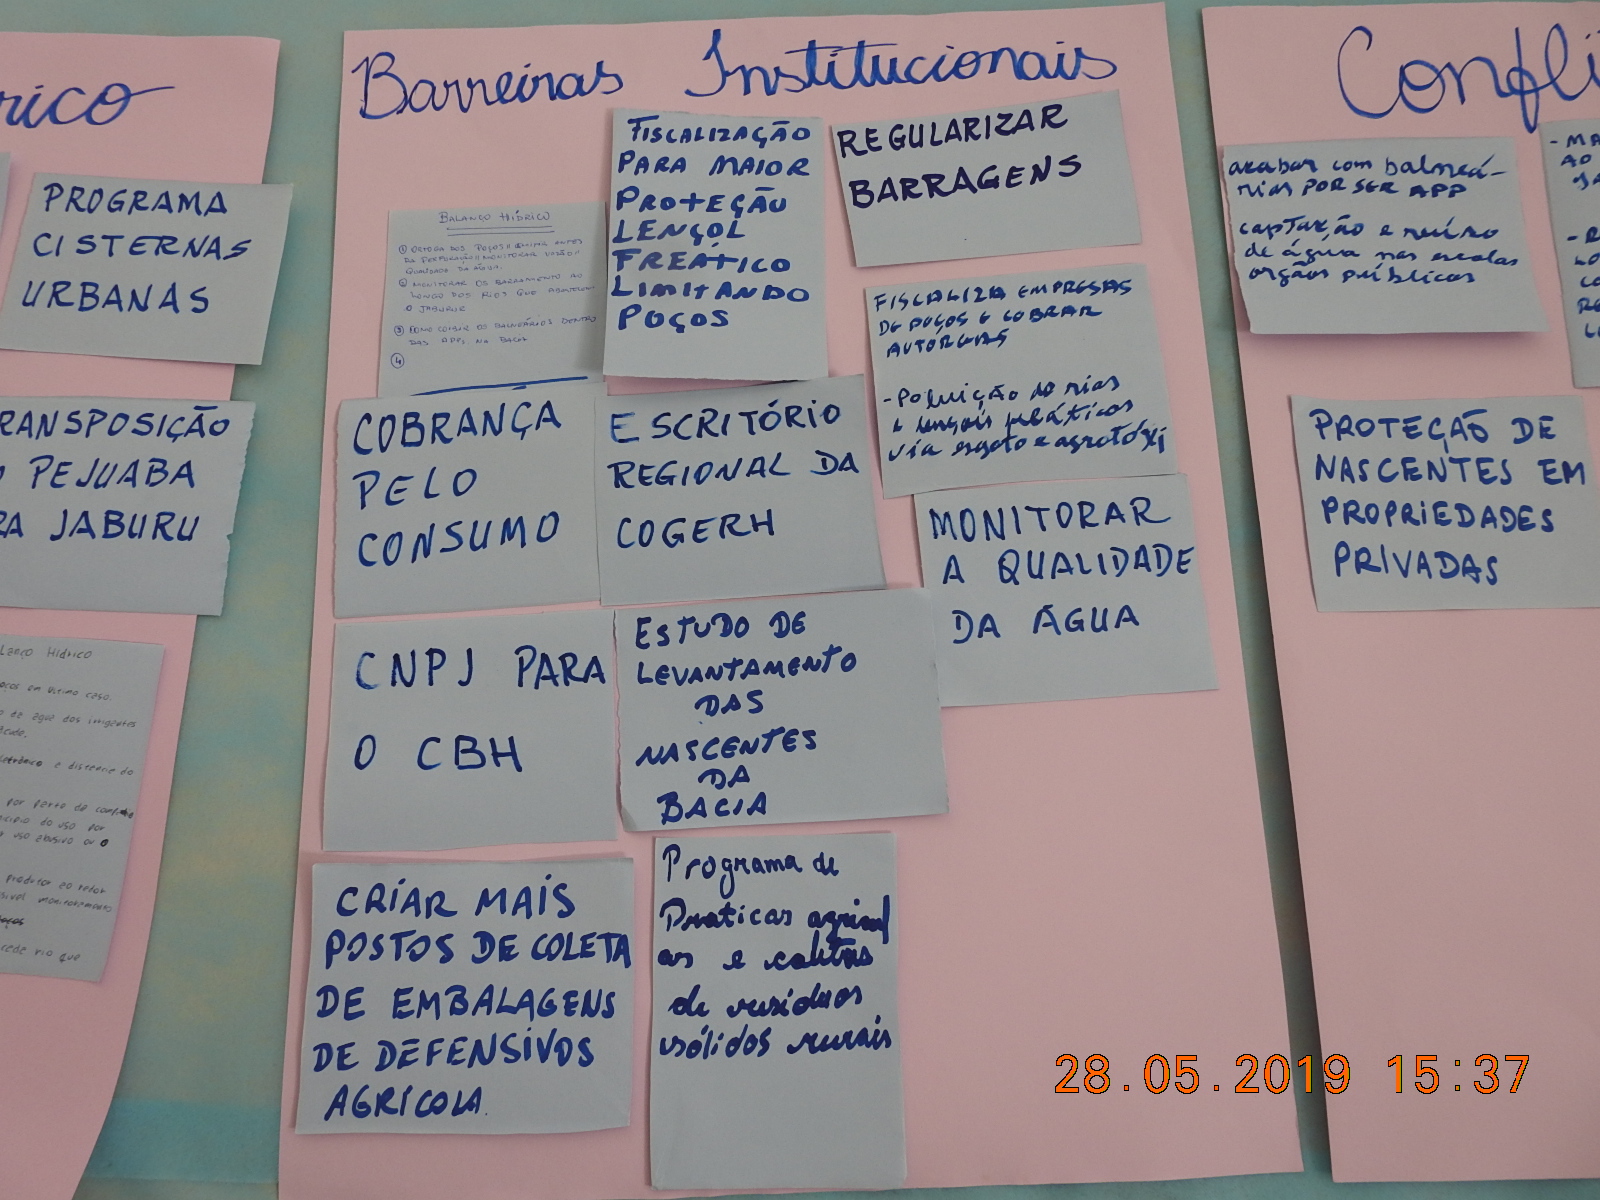 rico
PROGRAMA
CISTERNAS
URBANAS
RANSPOSIÇÃO
PEJUABA
RA JABURU
Hídrico
em último caso.
de agua dos irrigantes
e discerne do
por parte de
do uso por
uso abusivo ou o
produtor ao redor
monitoramento
rio que
Barreiras Institucionais
BALANÇO HÍDRICO
① OTORGA DOS POÇOS
DA PERFURAÇÃO // MONITORAR VAZÃO //
QUALIDADE DA ÁGUA.
② MONITORAR OS BARRAMENTO AO
LONGO DOS RIOS QUE ABASTECEM
O JABURU
③ COMO COIBIR OS BALNEÁRIOS DENTRO
DAS APPs NA BACIA
④
FISCALIZAÇÃO
PARA MAIOR
PROTEÇÃO
LENÇOL
FREÁTICO
LIMITANDO
POÇOS
REGULARIZAR
BARRAGENS
FISCALIZA EMPRESAS
DE POÇOS E COBRAR
AUTÓRGAS
- POLUIÇÃO do rios
e lençois freáticos
via esgoto e agrotóxi
COBRANÇA
PELO
CONSUMO
ESCRITÓRIO
REGIONAL DA
COGERH
MONITORAR
A QUALIDADE
DA ÁGUA
CNPJ PARA
O CBH
ESTUDO DE
LEVANTAMENTO
DAS
NASCENTES
DA
BACIA
CRIAR MAIS
POSTOS DE COLETA
DE EMBALAGENS
DE DEFENSIVOS
AGRÍCOLA.
Programa de
Praticas agricol
as e coletas
de residuos
sólidos rurais
Confli
acabar com balneá-
rios POR SER APP
captação e reúso
de água nas escolas
orgãos públicos
- MA
AO
- R
CO
RE
PROTEÇÃO DE
NASCENTES EM
PROPRIEDADES
PRIVADAS
28.05.2019 15:37